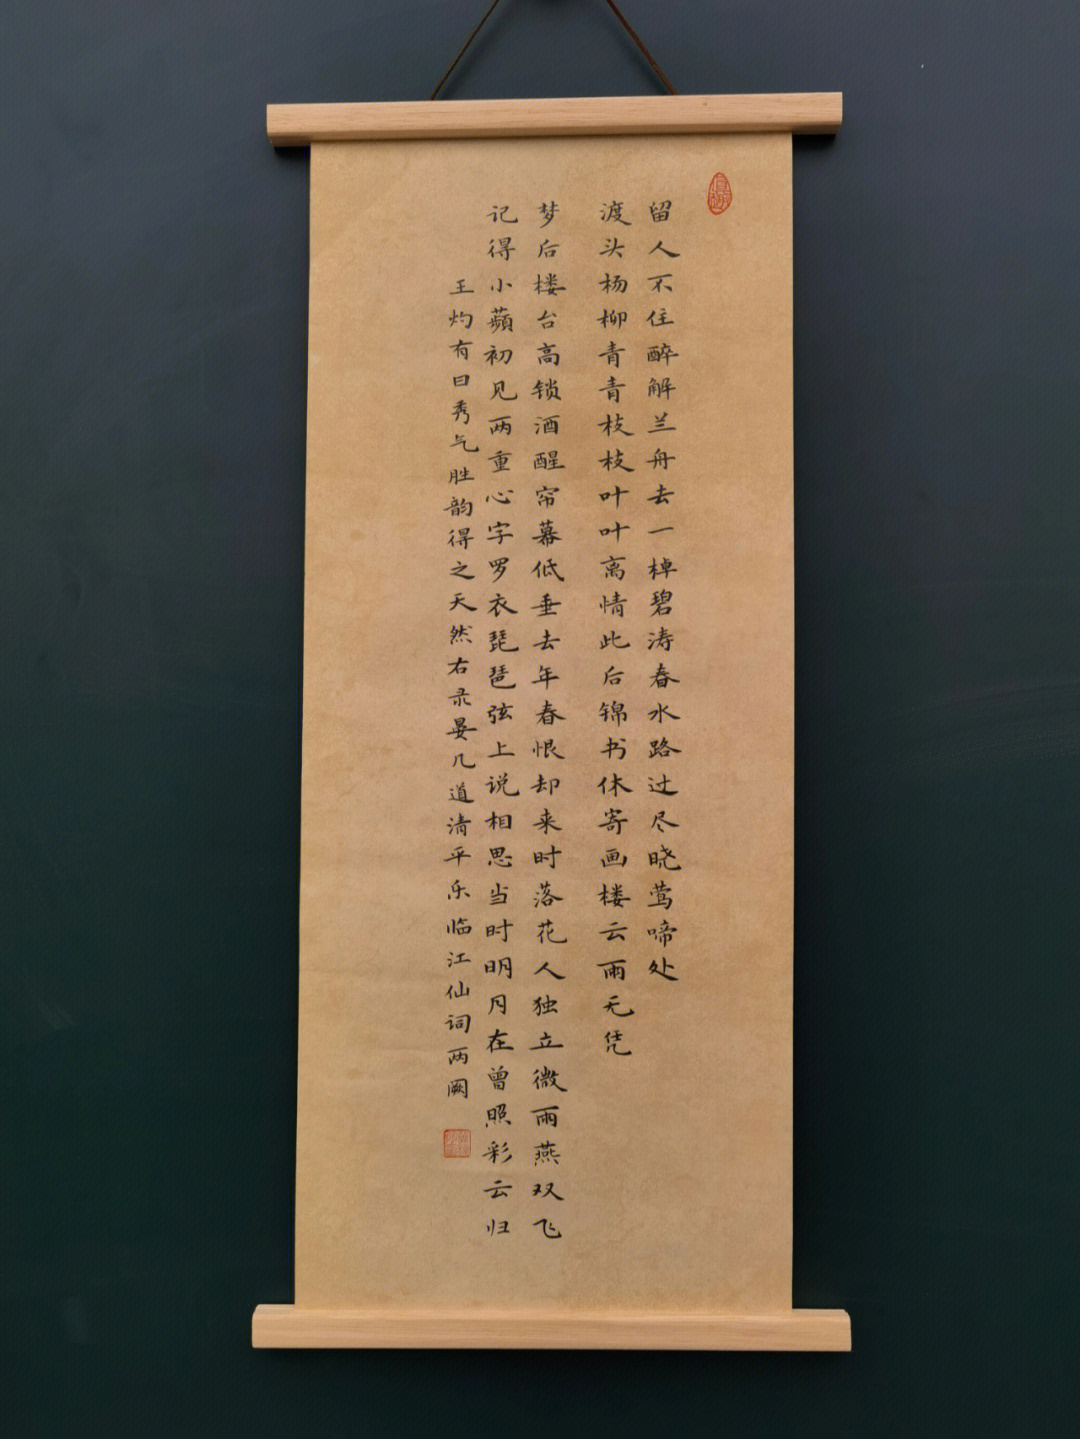 留人不住醉解兰舟去一棹碧涛春水路过尽晓莺啼处
渡头杨柳青青枝枝叶叶离情此后锦书休寄画楼云雨无凭
梦后楼台高锁酒醒帘幕低垂去年春恨却来时落花人独立微雨燕双飞
记得小蘋初见两重心字罗衣琵琶弦上说相思当时明月在曾照彩云归
王灼有曰秀气胜韵得之天然右录晏几道清平乐临江仙词两阕